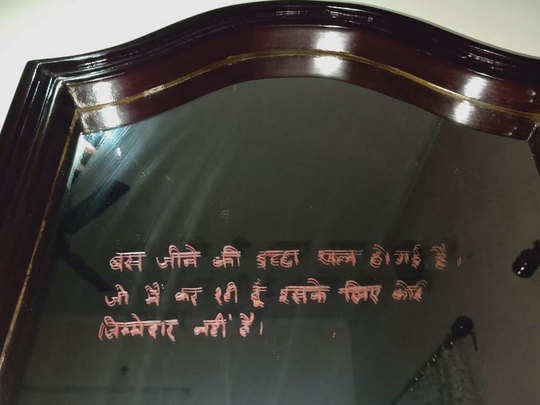 बस जीने की इच्छा खत्म हो गई है।
जो मैं कर रही हूँ इसके लिए कोई
जिम्मेदार नहीं है।